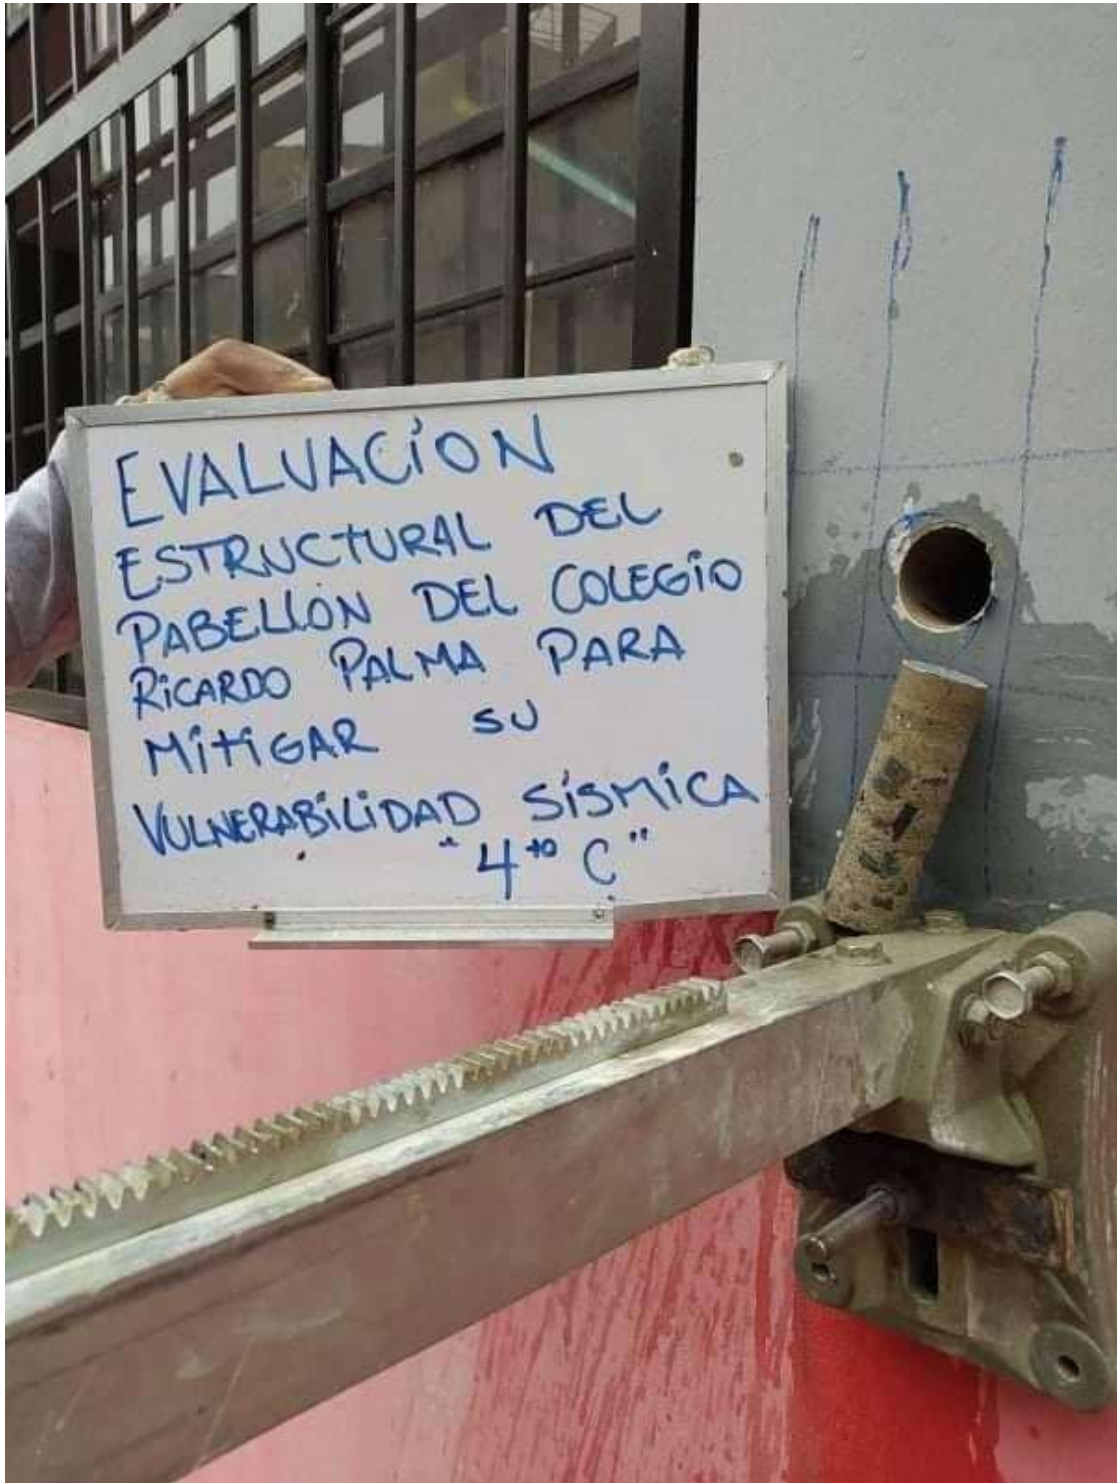 EVALUACÍON
ESTRUCTURAL DEL
PABELLÓN DEL COLEGIO
RICARDO PALMA PARA
MITIGAR SU
VULNERABILIDAD SÍSMICA
"4to C"